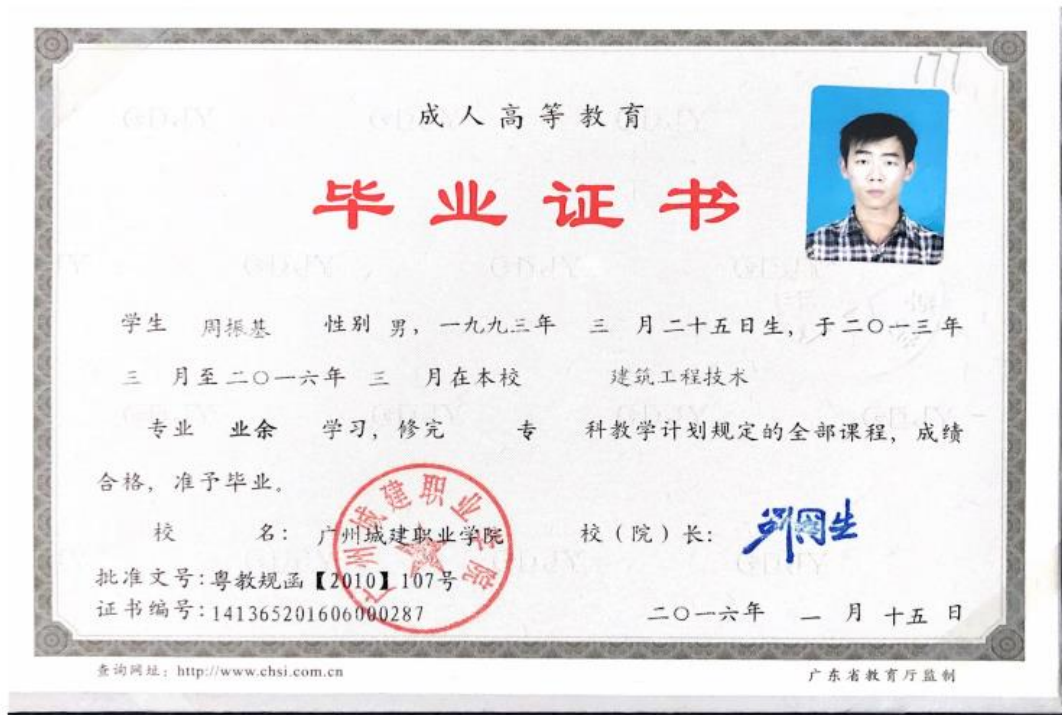 177
成人高等教育
毕业证书
学生 周振基 性别 男，一九九三年 三 月二十五日生，于二〇一三年
三 月至二〇一六年 三 月在本校 建筑工程技术
专业 业余 学习，修完 专 科教学计划规定的全部课程，成绩
合格，准予毕业。
校 名：广州城建职业学院 校（院）长：
广州城建职业学院
批准文号：粤教规函【2010】107号
证书编号：141365201606000287 二〇一六年 一 月 十五 日
查询网址：http://www.chsi.com.cn 广东省教育厅监制